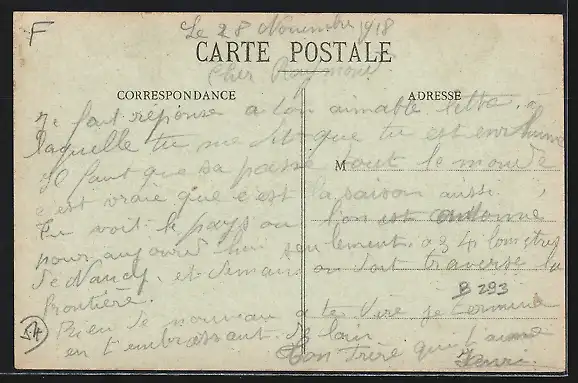 F
Le 28 Novembre 1918
CARTE POSTALE
Cher Raymond
CORRESPONDANCE
ADRESSE
Je fait réponse a ton aimable lettre, a
laquelle tu me dit que tu est enrhumé
Il faut que sa passe tout le monde
M
c'est vraie que c'est la saison aussi.
Tu voit le pays ou l'on est
pour aujourd hui seulement. a 34
de Nancy, et demain on doit traverse la
frontière.
B 293
Rien de nouveau a te dire je termine
54
en t'embrassant. de loin
Ton frère qui t'aime
Henri.